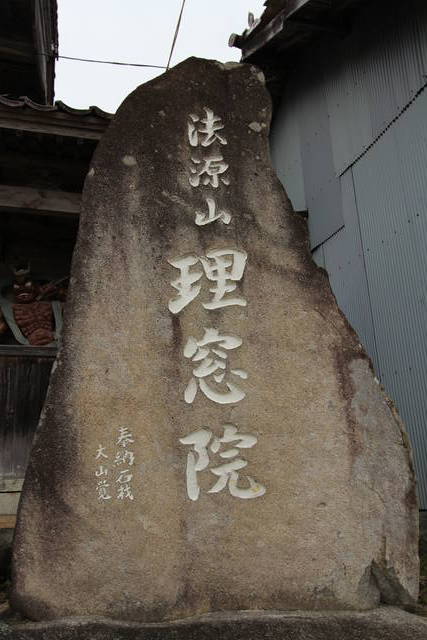 法源山
理窓院
奉納石材
大山覚